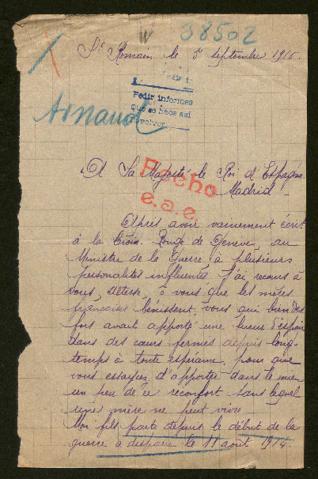 38502
St Romain le 5 septembre 1916.
Pedir informes
Que se hace así
Arnaud
A Sa Majesté le Roi d'Espagne
Madrid.
Fecho
e.a.e.
Après avoir vainement écrit
à la Croix Rouge de Genève, au
Ministre de la Guerre, à plusieurs
personalités influentes j'ai recours à
vous, à vous que les mères
françaises bénissent, vous qui bien des
fois avait apporté une lueur d'espoir
dans des cœurs fermés depuis long-
temps à toute espérance, pour que
vous essayiez d'apporter dans le mien
un peu de ce réconfort sans lequel
une mère ne peut vivre.
Mon fils parti depuis le début de la
guerre a disparu le 11 août 1914.